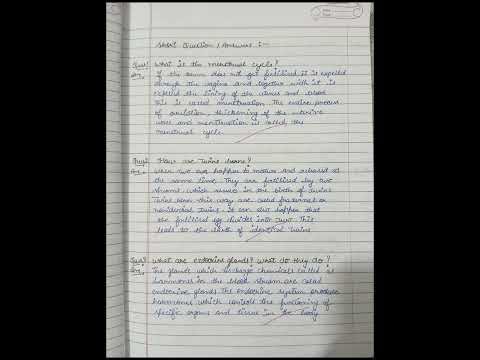 Short Question / Answers :-
Ques1 What is the menstrual cycle?
Ans. If the ovum does not get fertilised it is expelled
through the vagina and together with it is
expelled the lining of the uterus and blood
This is called menstruation. The entire process
of ovulation, thickening of the uterine
wall and menstruation is called the
menstrual cycle.
Ques2 How are twins born?
Ans. When two ova happen to mature and released at
the same time, they are fertilised by two
sperms which results in the birth of twins
Twins born this way are called fraternal or
nonidentical twins. It can also happen that
the fertilised egg divides into two. This
leads to the birth of identical twins
Ques3 What are endocrine glands? What do they do?
Ans. The glands which discharge chemicals called as
harmones in the blood stream are called
endocrine glands. The endocrine system produce
harmones which controls the functioning of
specific organs and tissue in the body